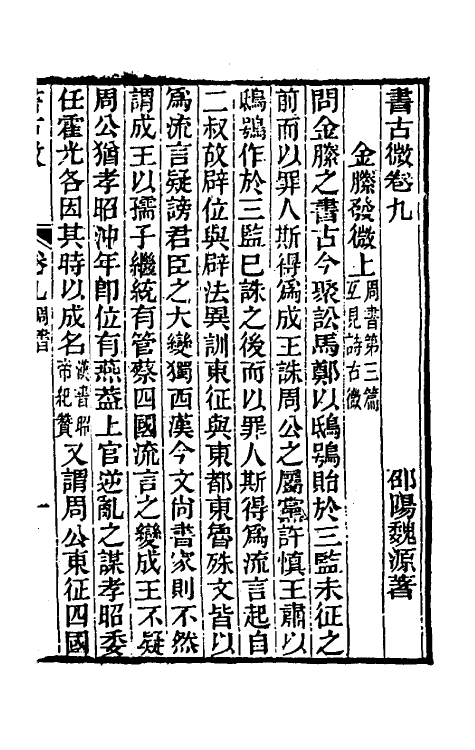 書古微卷九
邵陽魏源著
金縢發微上周書第三篇互見詩古微
問金縢之書古今聚訟馬鄭以鴟鴞貽於三監未征之
前而以罪人斯得爲成王誅周公之屬黨許慎王肅以
鴟鴞作於三監已誅之後而以罪人斯得爲流言起自
二叔故辟位與辟法異訓東征與東都東魯殊文皆以
爲流言疑謗君臣之大變獨西漢今文尚書家則不然
謂成王以孺子繼統有管蔡四國流言之變成王不疑
周公猶孝昭沖年卽位有燕葢上官逆亂之謀孝昭委
任霍光各因其時以成名漢書昭帝紀贊又謂周公東征四國
卷九周書
一